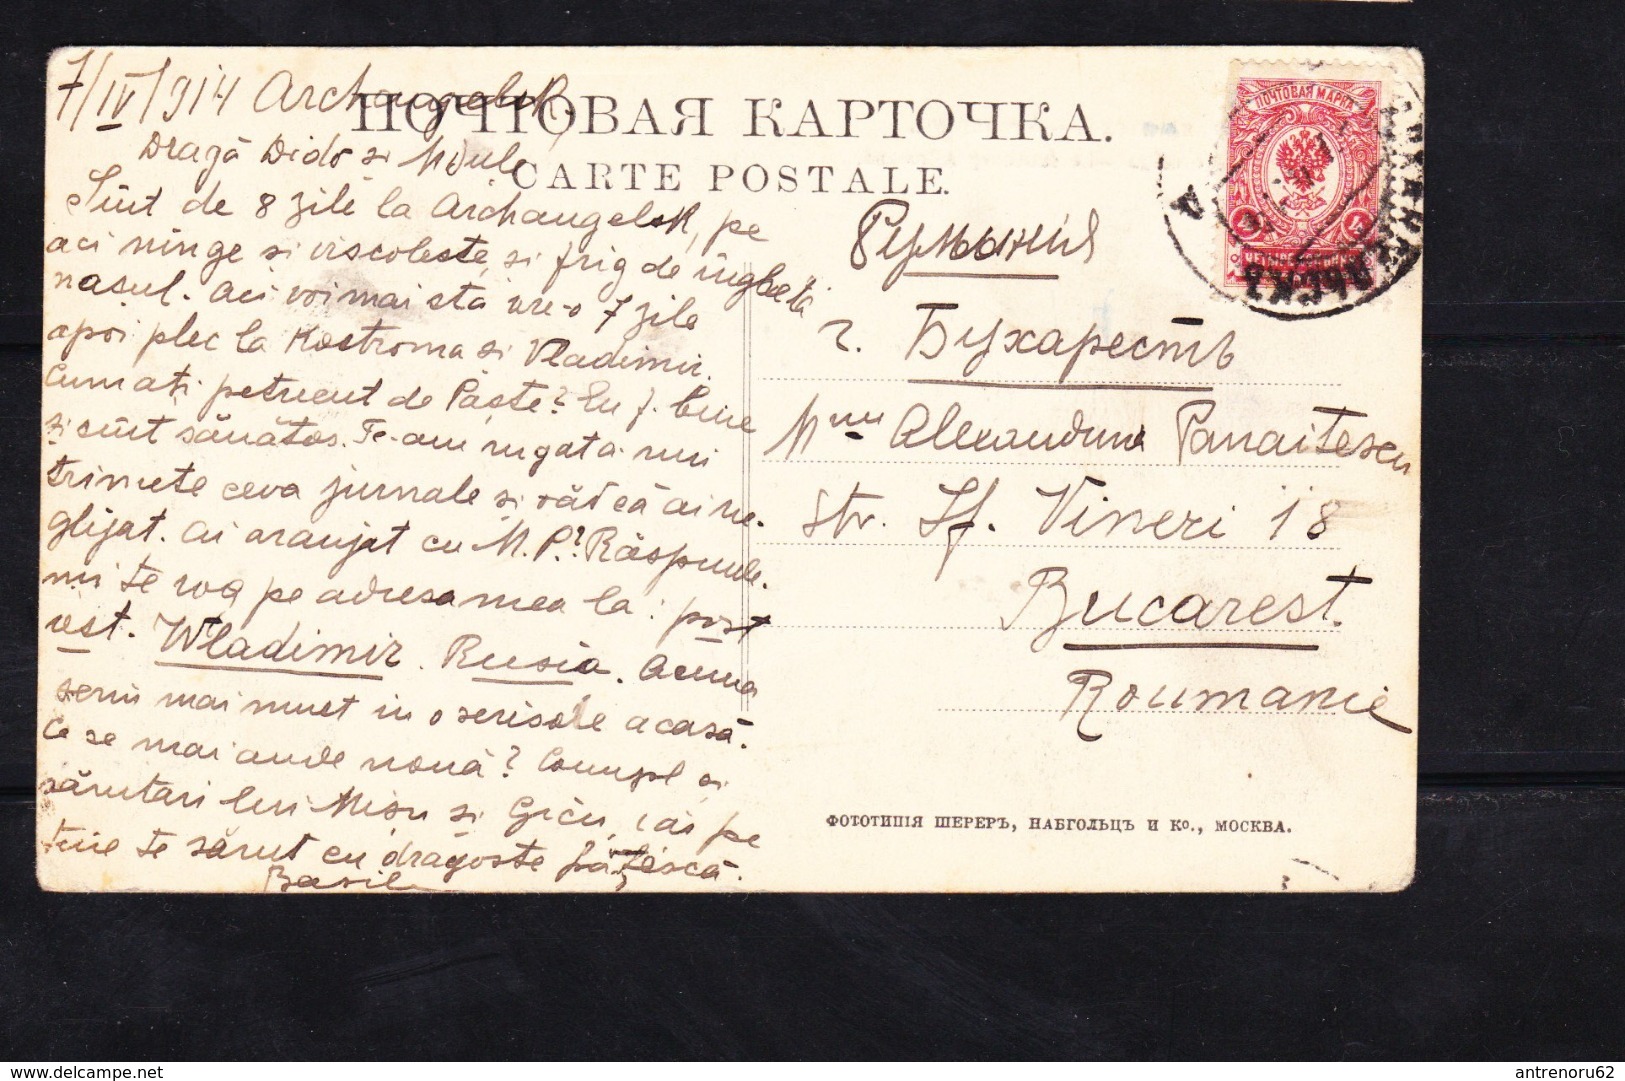 7/IV/914 Archangelsk.
ПОЧТОВАЯ КАРТОЧКА.
CARTE POSTALE.
Dragă Dido si
Sînt de 8 zile la Archangelsk, pe
aci ninge si viscoleste, si frig de îngheță
nasul. Aci voi mai sta vre-o 7 zile
apoi plec la Kostroma si Vladimir.
Cum ați petrecut de Paște? Eu f. bine
si sînt sănătos. Te-am rugat a-mi
trimete ceva jurnale si văd că ai ne-
glijat. Ai aranjat cu M. P.? Răspunde-
mi te rog pe adresa mea la: post
rest. Wladimir. Rusia. Acuma
scriu mai mult in o scrisoare acasă.
Ce se mai aude nouă? Compl. si
sărutari lui Misu si Gicu, iar pe
tine te sărut cu dragoste frățescă.
Basile
ПОЧТОВАЯ МАРКА
4
4
Румынія
г. Бухарестъ
Mme Alexandrina Panaitescu
Str. Sf. Vineri 18
Bucarest.
Roumanie
ФОТОТИПІЯ ШЕРЕРЪ, НАБГОЛЬЦЪ И Ко., МОСКВА.
antrenoru62